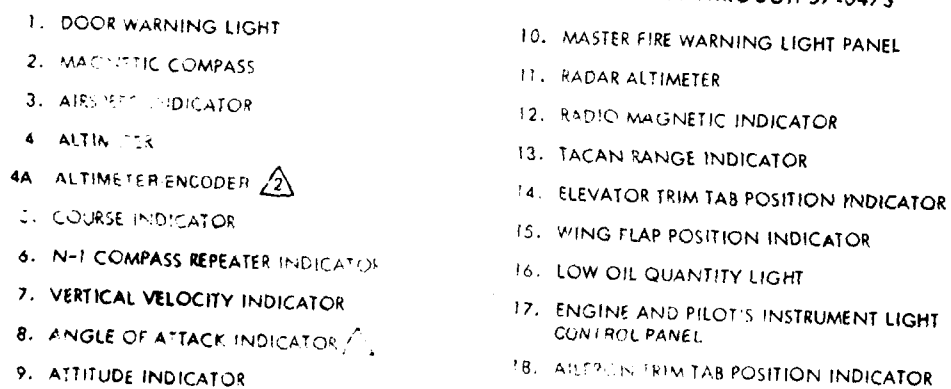 THROUGH 57-0473
1. DOOR WARNING LIGHT
2. MAGNETIC COMPASS
3. AIRSPEED INDICATOR
4 ALTIMETER
4A ALTIMETER-ENCODER 2
5. COURSE INDICATOR
6. N-1 COMPASS REPEATER INDICATOR
7. VERTICAL VELOCITY INDICATOR
8. ANGLE OF ATTACK INDICATOR
9. ATTITUDE INDICATOR
10. MASTER FIRE WARNING LIGHT PANEL
11. RADAR ALTIMETER
12. RADIO MAGNETIC INDICATOR
13. TACAN RANGE INDICATOR
14. ELEVATOR TRIM TAB POSITION INDICATOR
15. WING FLAP POSITION INDICATOR
16. LOW OIL QUANTITY LIGHT
17. ENGINE AND PILOT'S INSTRUMENT LIGHT
CONTROL PANEL
18. AILERON TRIM TAB POSITION INDICATOR